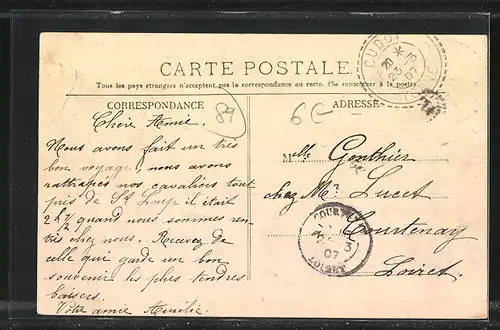 CARTE POSTALE
Tous les pays étrangers n'acceptent pas la correspondance au recto. (Se renseigner à la poste)
CORRESPONDANCE
ADRESSE
87
6 €
CUDOT
20 * 19
23
07
YONNE
Chère Amie.
Nous avons fait un très
bon voyage, nous avons
rattrapés nos cavaliers tout
près de St
il était
2 h ½ quand nous sommes ren-
très chez nous. Recevez de
celle qui garde un bon
souvenir les plus tendres
baisers.
Votre amie Aurélie.
Mlle Gonthier
chez Mr Lucet
Courtenay
Loiret.
COURTENAY
07
LOIRET